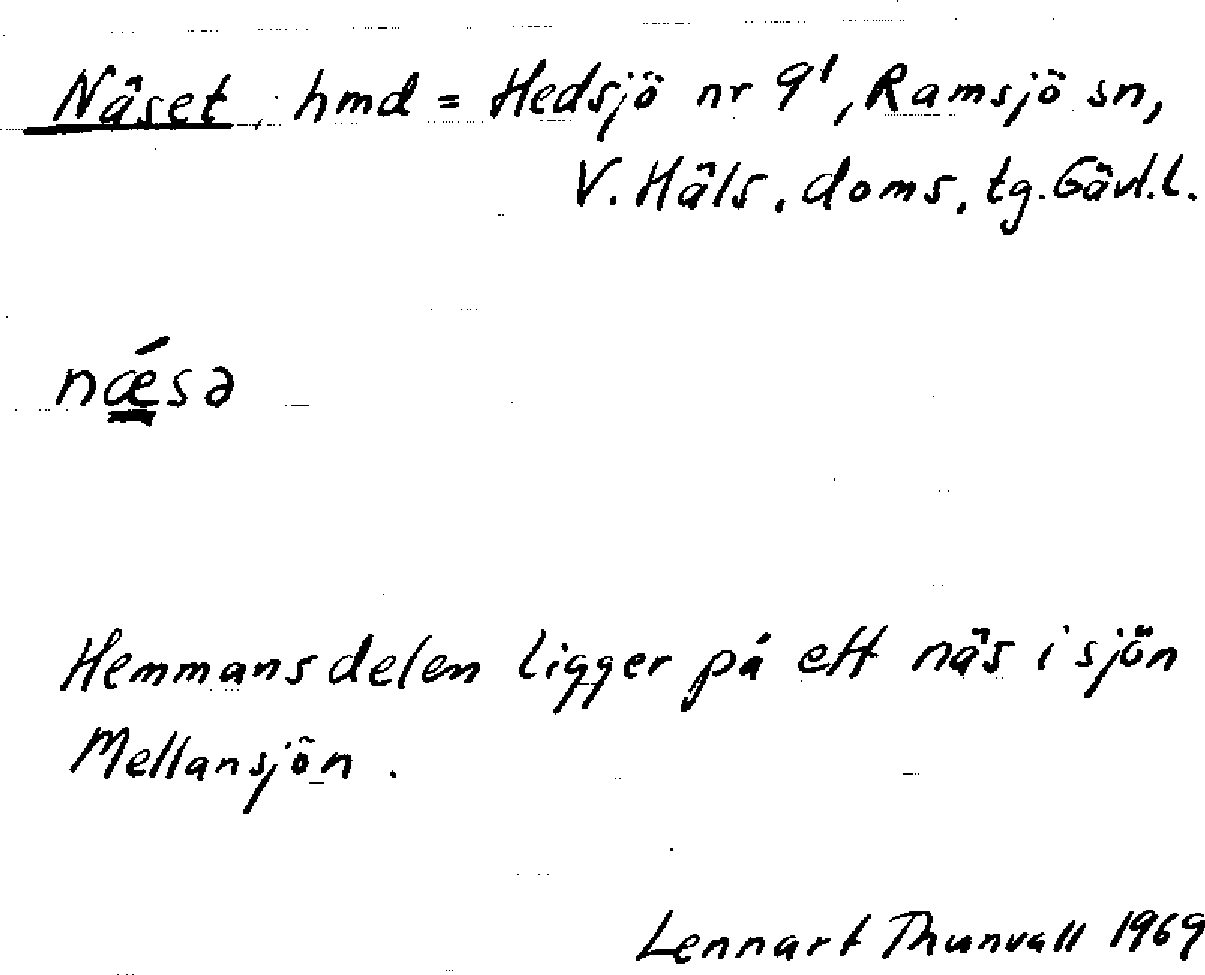 Näset, hmd = Hedsjö nr 9¹, Ramsjö sn,
V. Häls. doms. tg. Gävl.l.
nǽsə
Hemmansdelen ligger på ett näs i sjön
Mellansjön.
Lennart Thunvall 1969